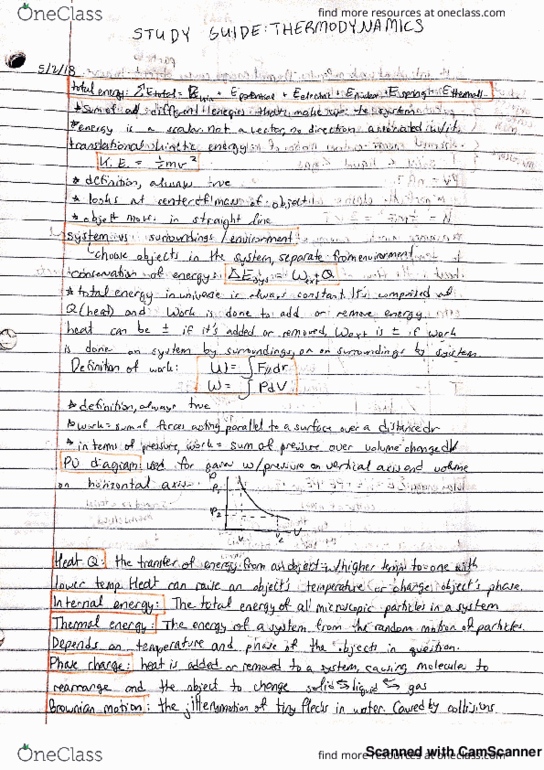 OneClass
find more resources at oneclass.com
STUDY GUIDE: THERMODYNAMICS
5/2/18
total energy: ΣEtotal = Ekin + Epotential + Eelectric + Enuclear + Espring + Ethermal
* sum of all different energies that make up the system
* energy is a scalar not a vector, no direction associated with it
translational kinetic energy
K.E. = ½mv²
* definition, always true
* looks at center of mass of object
* object moves in straight line
system vs surroundings/environment:
choose objects in the system, separate from environment
conservation of energy: ΔEsys = Wext + Q
* total energy in universe is always constant. It's comprised of
Q (heat) and Work is done to add or remove energy
heat can be ± if it's added or removed, Wext is ± if work
is done on system by surroundings, or on surroundings by system
Definition of work: W = ∫ F∥dr
W = ∫ PdV
* definition, always true
* work = sum of forces acting parallel to a surface over a distance dr
* in terms of pressure, work = sum of pressure over volume change dV
PV diagram: used for gases w/ pressure on vertical axis and volume
on horizontal axis
P
P₁
P₂
V₁ V₂ V
Heat Q: the transfer of energy from an object w/ higher temp to one with
lower temp. Heat can raise an object's temperature or change object's phase.
Internal energy: The total energy of all microscopic particles in a system
Thermal energy: The energy of a system from the random motion of particles.
Depends on temperature and phase of the objects in question.
Phase change: heat is added or removed to a system, causing molecules to
rearrange and the object to change solid ⇆ liquid ⇆ gas
Brownian motion: the jittery motion of tiny flecks in water. Caused by collisions
OneClass
find more resources at oneclass.com
Scanned with CamScanner